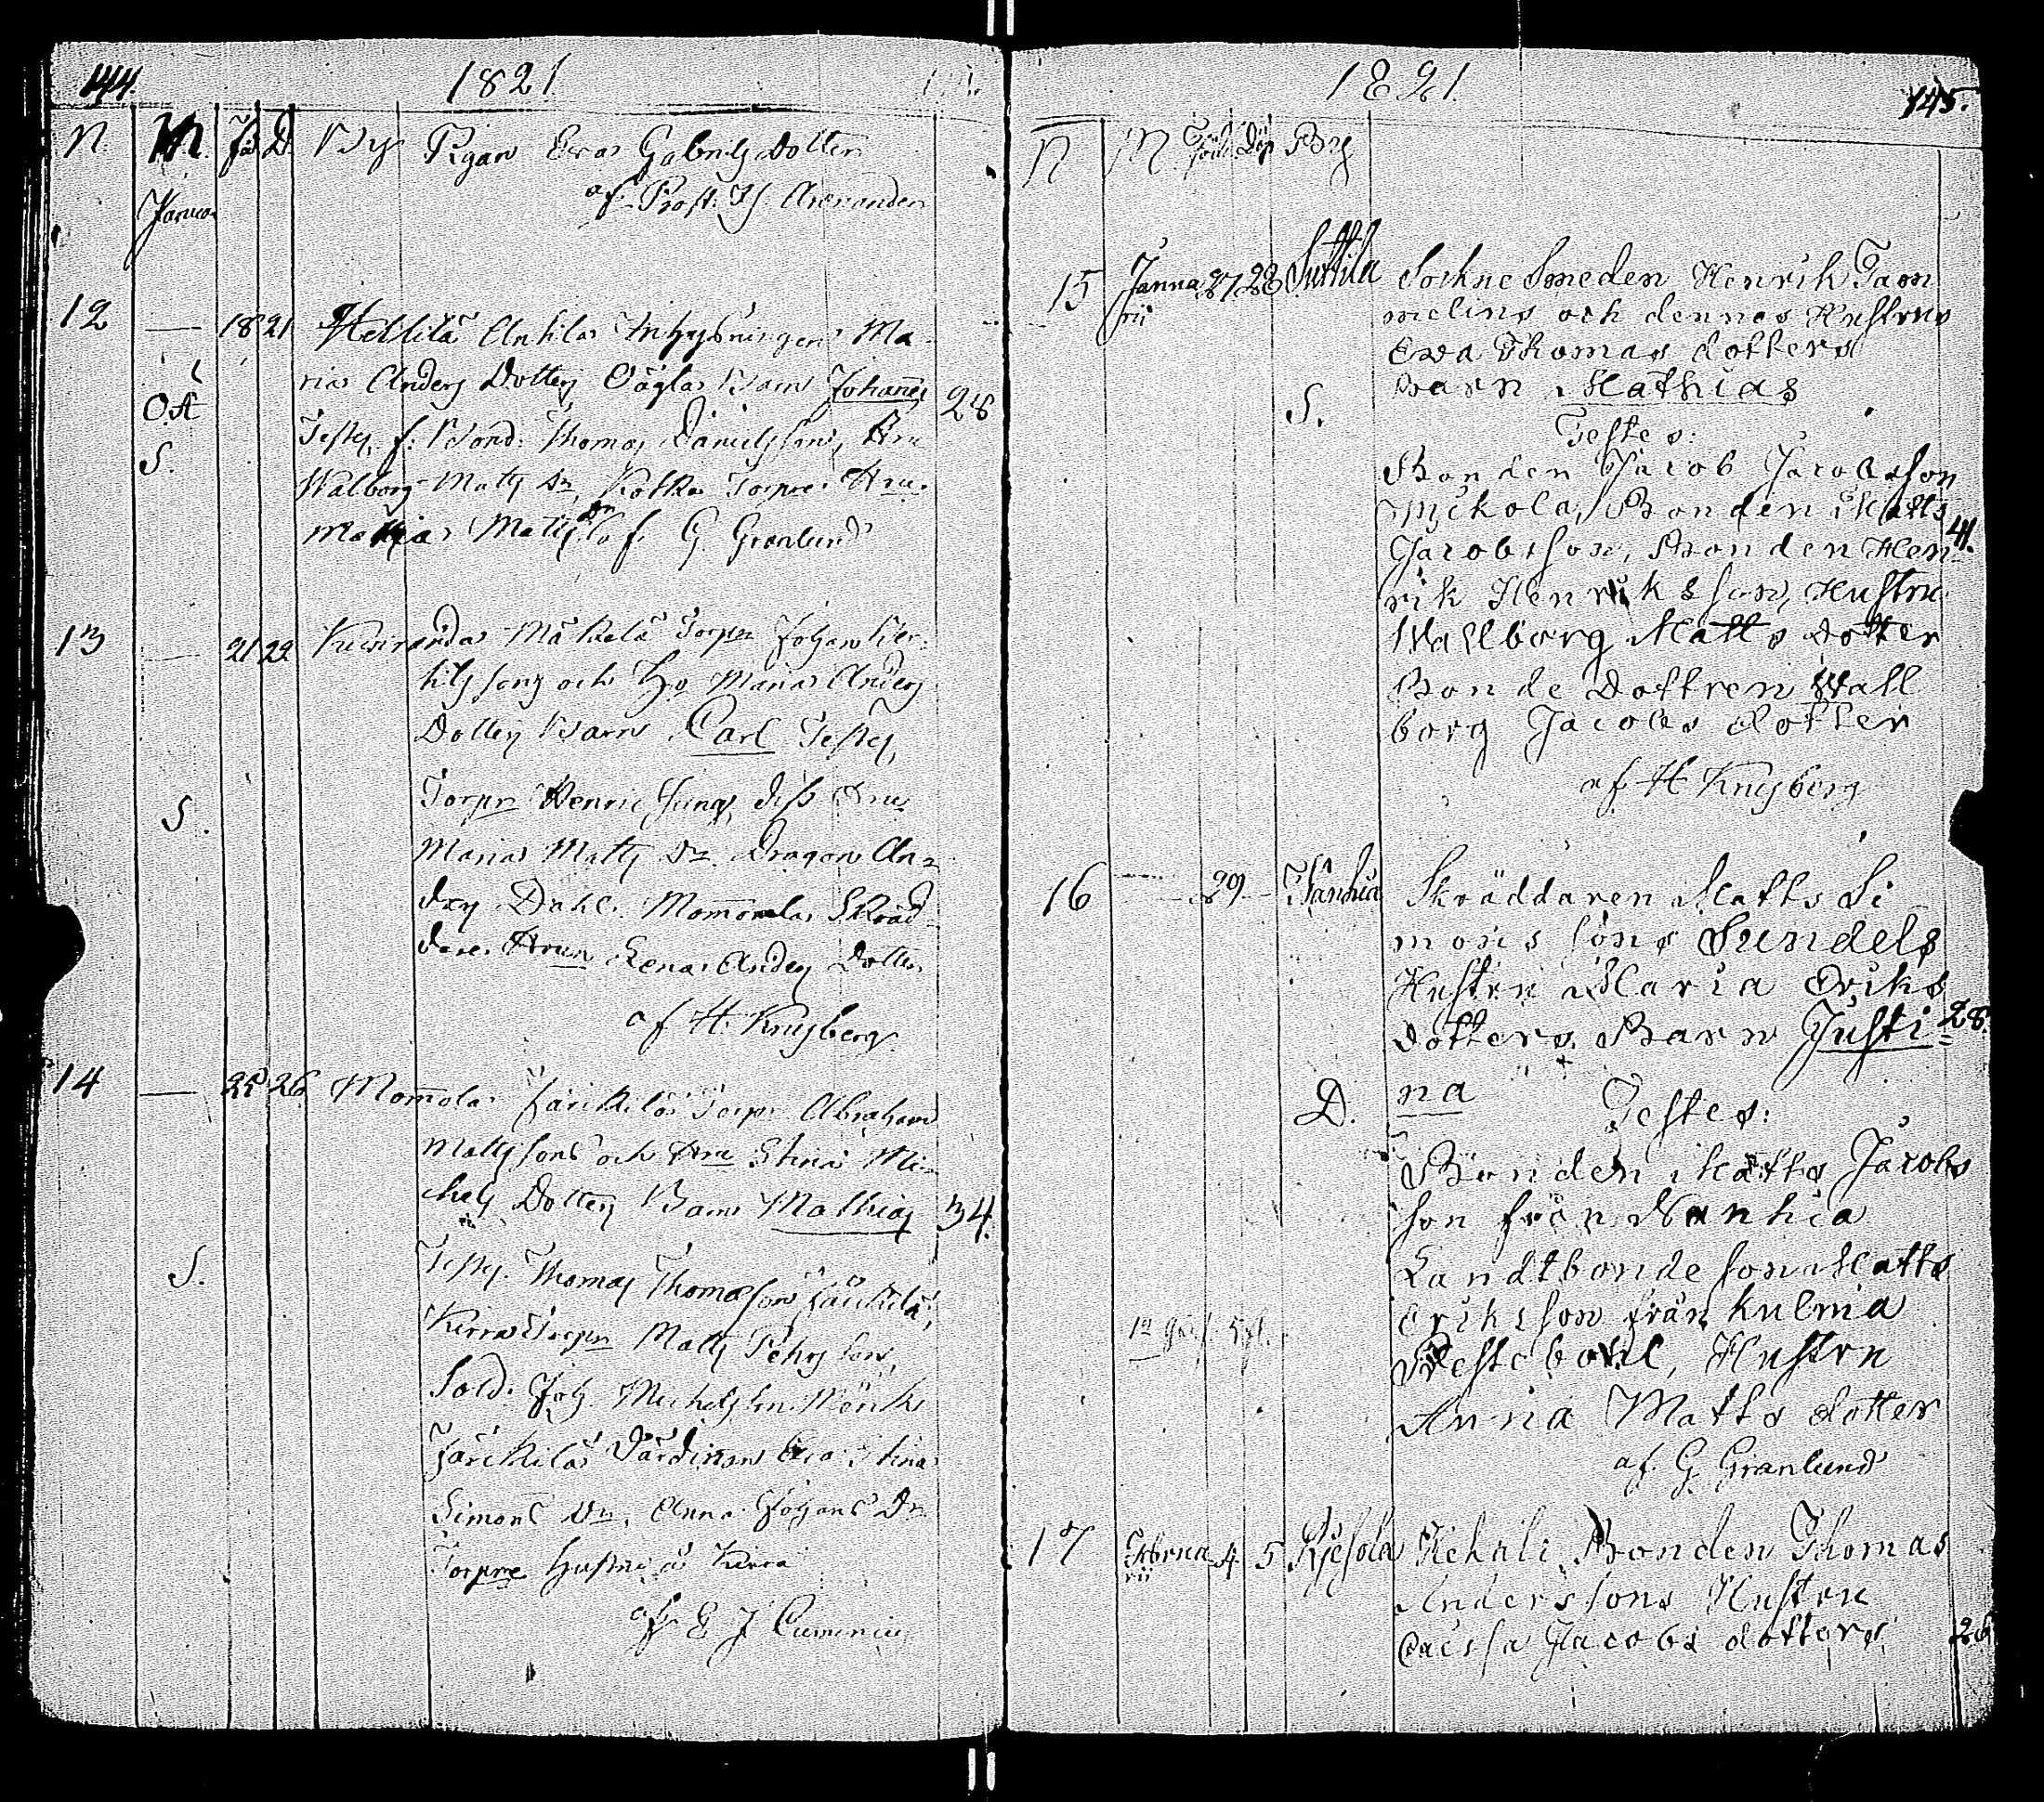 144. 1821
N. M. föd D. By Pigan Eva Gabriels Dotter
af Prost. Is Arenander
Janua
12 — 18 21 Heltilä Anttila Inhysningen Ma-
ria Anders Dotters Oägta Barn Johannes 28
OÄ
Testes, f. Bond. Thomas Danielsson, Hru
S.
Walborg Matts Dr, Torpare Hru.
Matts Dr af. G. Granlund
13 — 21 22 Mäkelä Torpn Johan
sons och Ho Maria Anders
Dotters Barn Carl Testes,
Torpn Henric Hru
S.
Maria Matts Dr. Dragon An-
ders Dahl. Mom̄ola Skräd-
dare Hrun Lena Anders Dotter
af H. Krysberg
14 — 25 26 Mom̄ola Järikilä Torpn Abraham
Matts sons och Hru Stina Mi-
chels Dotters Barn Mathias 34.
S.
Testes. Thomas Thomasson Järikilä,
Kirra Torpn Matts Pehrs son,
Sold. Joh. Michelsson Mörck
Järikilä Värdinan Stina
Simons Dr, Anna Johans Dr
Torpare Hustru i Kirra
af E J Cumenius
1821. 145.
N M. Född Döp By
15 Janua 27 28 Suttila Sockne Smeden Henrik Tam
rii melins och dennas Hustrus
Eva Thomas dotters
Barn Mathias
S.
Testes:
Bonden Jacob Jacobsson
Mickola, Bonden Matts 41.
Jacobsson, Bonden Hen-
rik Henriksson, Hustru
Wallborg Matts Dotter
Bonde Dottren Wall
borg Jacobs dotter
af H Krysberg
16 — 29 — Nanhia Skräddaren Matts Si
mons sons Sundels
Hustru Maria Eriks
dotters Barn Justi- 28.
D. na Testes:
Bonden Matts Jacobs
son från Nanhia
Landtbonde son Matts
Eriksson från Kulma
Hustru
Anna Matts dotter
af. G. Granlund
17 Februa 4 5 Ryesola Kehäli Bonden Thomas
rii Anderssons Hustru
Caissa Jacobs dotters 26